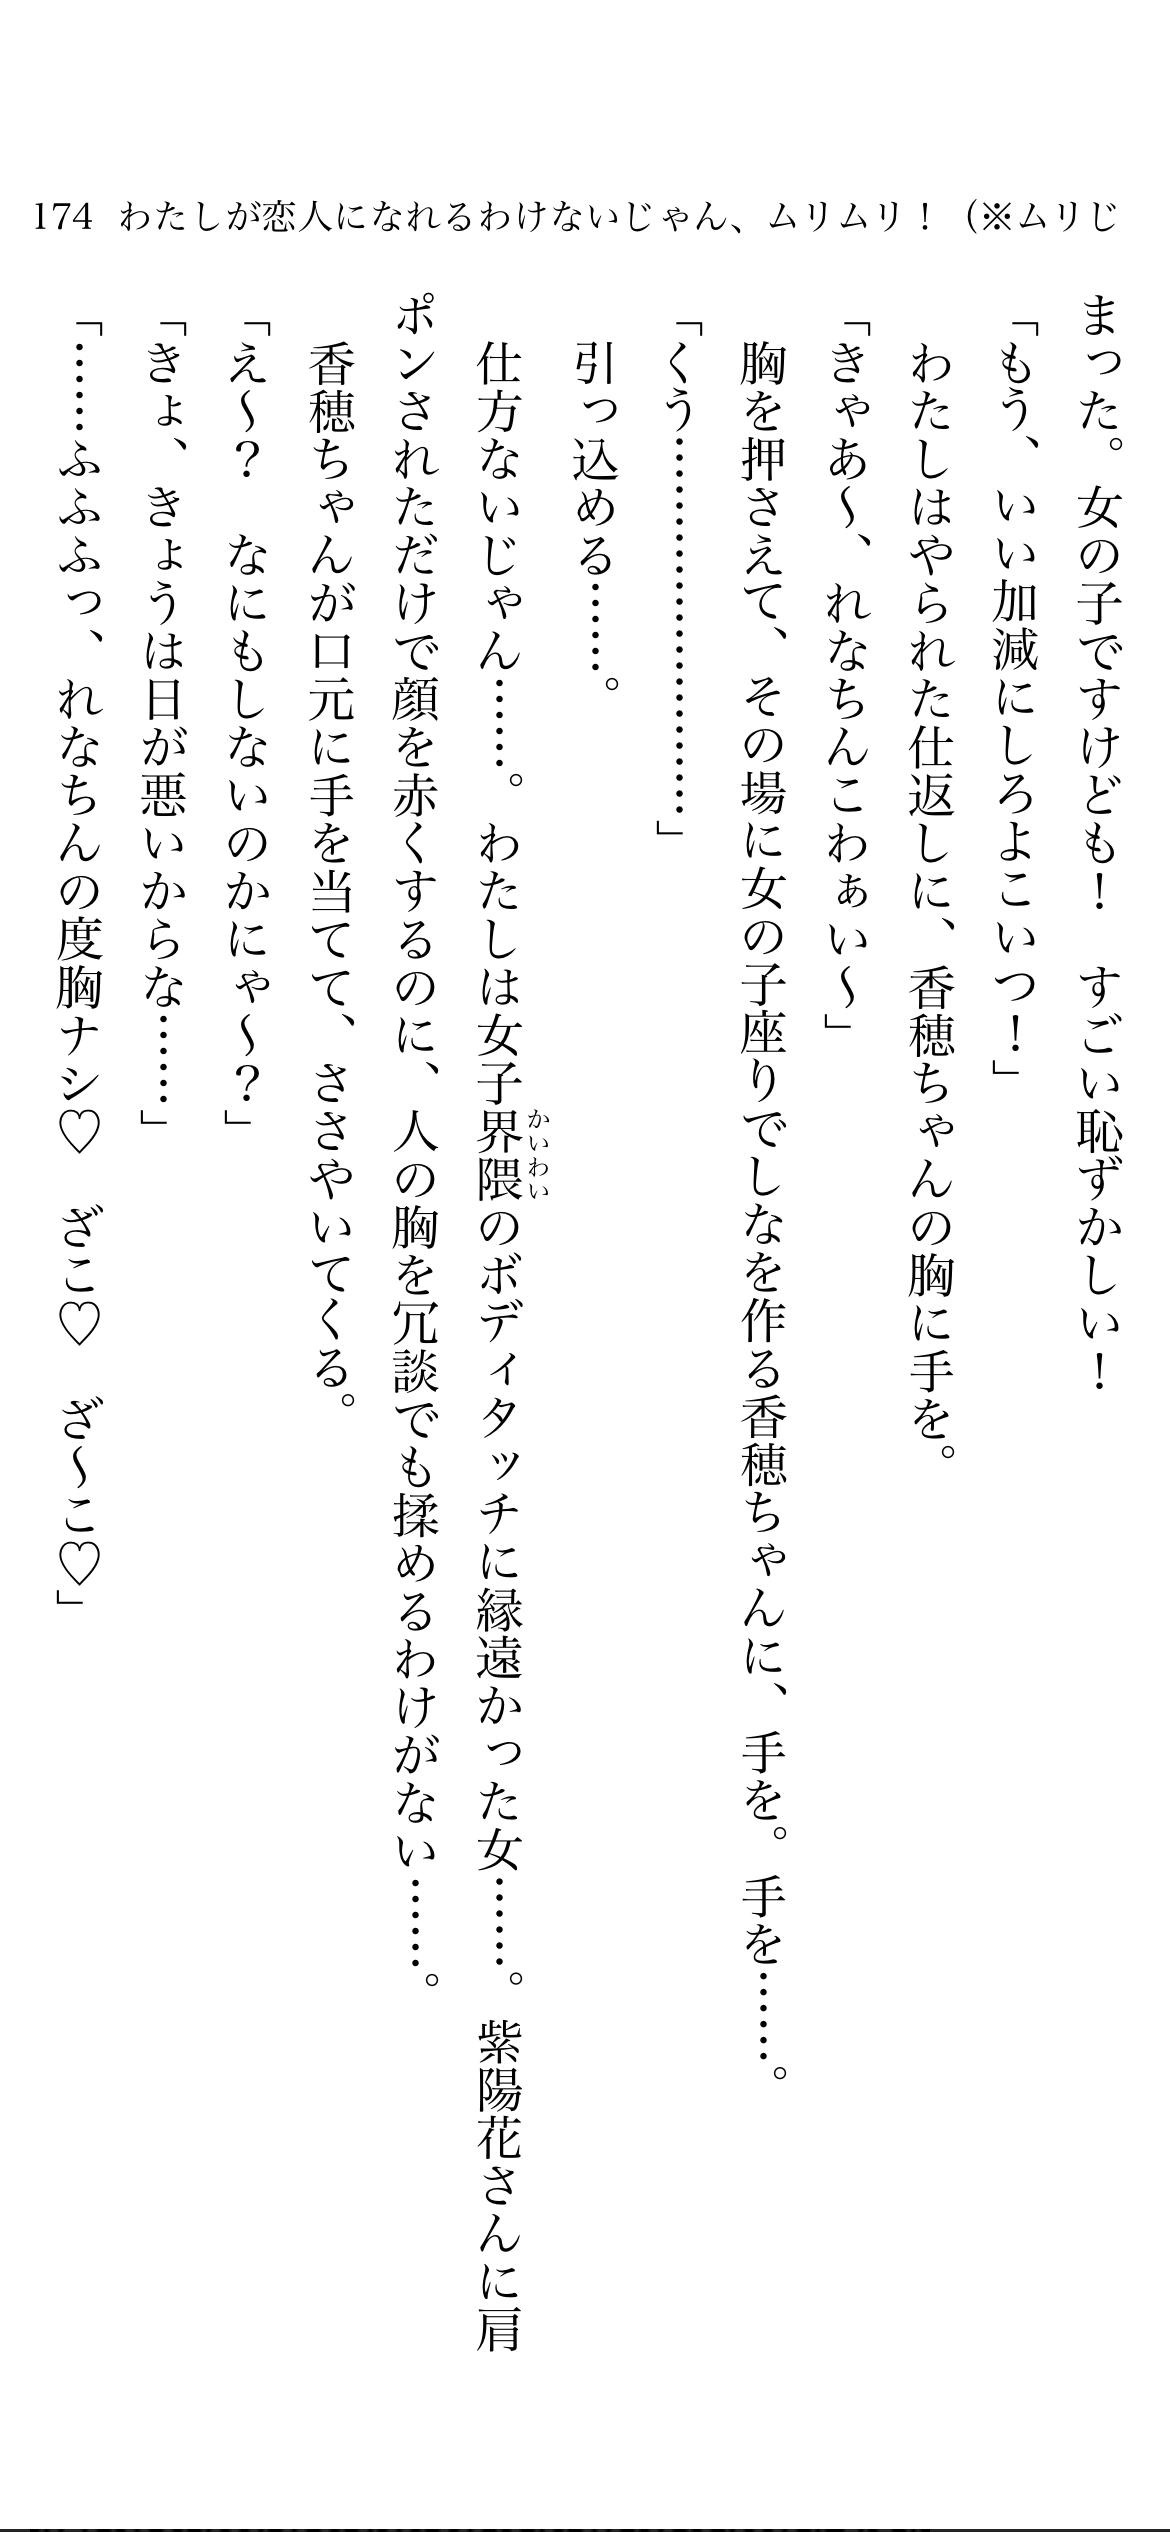 174 わたしが恋人になれるわけないじゃん、ムリムリ！（※ムリじ
まった。女の子ですけども！　すごい恥ずかしい！
「もう、いい加減にしろよこいつ！」
わたしはやられた仕返しに、香穂ちゃんの胸に手を。
「きゃあ〜、れなちんこわぁい〜」
胸を押さえて、その場に女の子座りでしなを作る香穂ちゃんに、手を。手を……。
「くう…………………………」
引っ込める……。
仕方ないじゃん……。わたしは女子界隈のボディタッチに縁遠かった女……。紫陽花さんに肩
かいわい
ポンされただけで顔を赤くするのに、人の胸を冗談でも揉めるわけがない……。
香穂ちゃんが口元に手を当てて、ささやいてくる。
「え〜？　なにもしないのかにゃ〜？」
「きょ、きょうは日が悪いからな……」
「……ふふふっ、れなちんの度胸ナシ♡　ざこ♡　ざ〜こ♡」